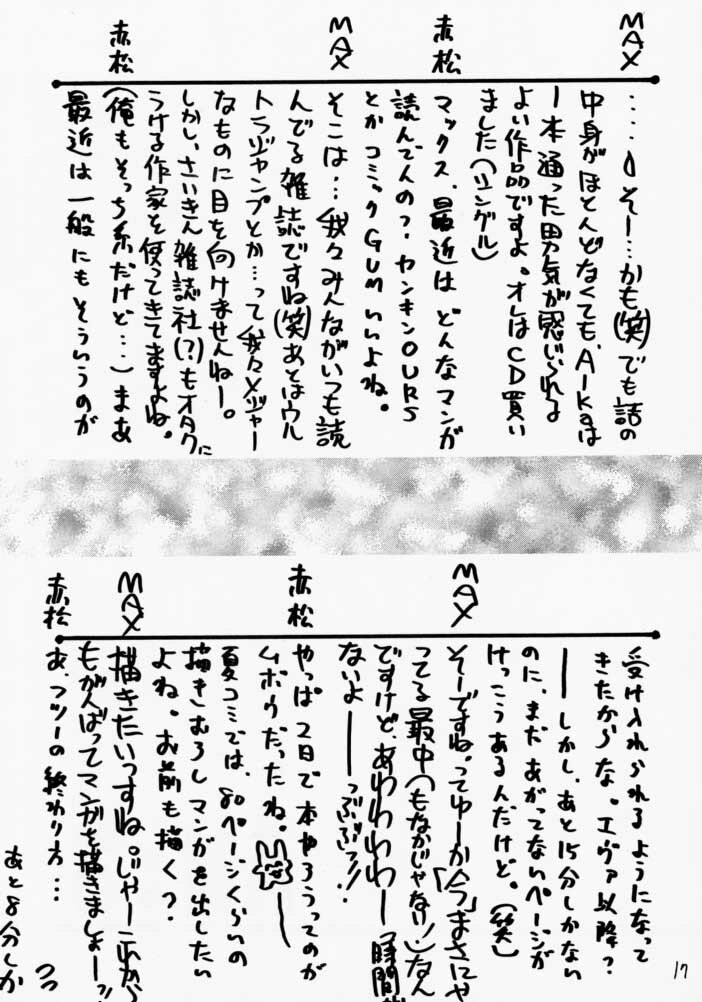 MAX
‥‥うそー…かも(笑)でも話の
中身がほとんどなくても、AIKaは
一本通った男気が感じられる
よい作品ですよ。オレはCD買い
ました(シングル)
赤松
マックス、最近はどんなマンガ
読んでんの?ヤンキンOURS
とかコミックGUMいいよね。
MAX
そこは…我々みんながいつも読
んでる雑誌ですね(笑)あとはウル
トラジャンプとか…って我々メジャー
なものに目を向けませんねー。
赤松
しかし、さいきん雑誌社(?)もオタクに
うける作家を使ってきてますよね。
(俺もそっち系だけど…)まあ
最近は一般にもそういうのが
受け入れられるようになって
きたからな。エヴァ以降?
――しかし、あと15分しかない
のに、まだあがってないページが
けっこうあるんだけど。(笑)
MAX
そーですね。ってゆーか「今」まさにや
ってる最中(もなかじゃない!)なん
ですけど、あわわわわー時間が
ないよ――っぷぷっ!!
赤松
やっぱ2日で本やろうってのが
ムボウだったね。――
夏コミでは、80ページくらいの
描きむろしマンガを出したい
よね。お前も描く?
MAX
描きたいっすね。じゃーこれから
もがんばってマンガを描きましょー!!
赤松
あ、フツーの終わり方…
あと8分しか
17